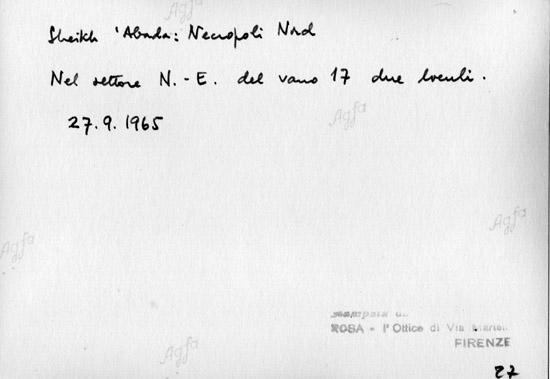 Agfa
Sheikh 'Abada: Necropoli Nord
Nel settore N.-E. del vano 17 due loculi.
27.9.1965
Agfa
Agfa
Agfa
stampata da
ROSA - l'Ottico di Via Martelli
FIRENZE
Agfa
27